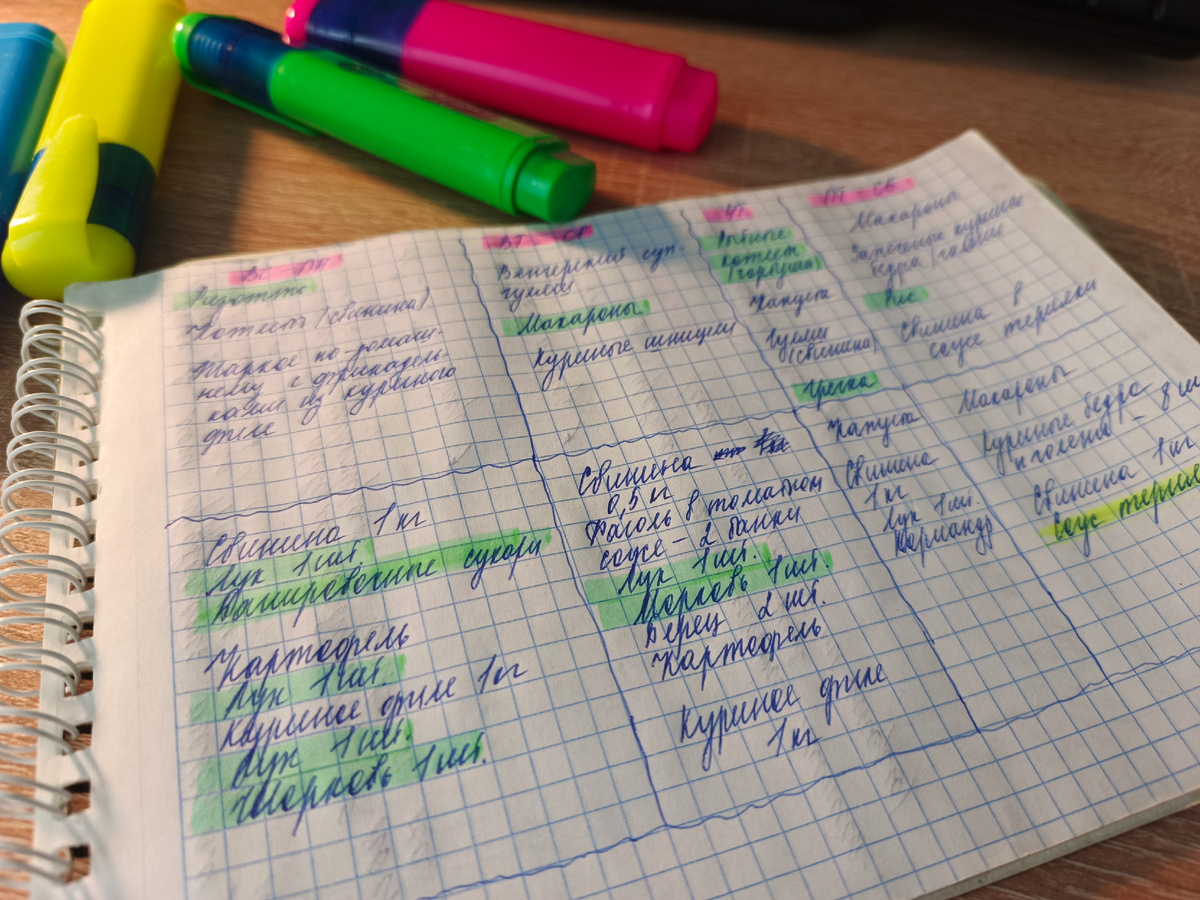 ВС-ПН
Ризотто
Котлеты (свинина)
Жаркое по-домаш-
нему с фрикадель-
ками из куриного
филе
Свинина 1 кг
Лук 1 шт.
Панировочные сухари
Картофель
Лук 1 шт.
Куриное филе 1 кг
Лук 1 шт.
Морковь 1 шт.
ВТ-СР
Венгерский суп-
гуляш
Макароны
Куриные шницели
Свинина
0,5 кг
Фасоль в томатном
соусе - 2 банки
Лук 1 шт.
Морковь 1 шт.
Перец 2 шт.
Картофель
Куриное филе
1 кг
ЧТ
Рыбные
котлеты
(горбуша)
Капуста
Гуляш
(свинина)
Гречка
Капуста
Свинина
1 кг
Лук 1 шт.
Кориандр
ПТ-СБ
Макароны
Запечённые куриные
бедра/голени
Рис
Свинина в
соусе терияки
Макароны
Куриные бедра
и голени - 8 шт
Свинина 1 кг
Соус терия